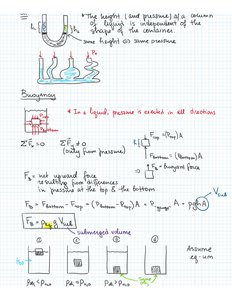 * The height (and pressure) of a column
of liquid is independent of the
shape of the container.
h₁
h₂
same height so same pressure
P₀
Buoyancy
* In a liquid, pressure is exerted in all directions
P top
P bottom
ΣFₓ = 0
ΣF_y ≠ 0
(only from pressure)
F_top = (P_top) A
F_bottom = (P_bottom) A
F_B = Buoyant force
F_B = net upward force
resulting from differences
in pressure at the top & the bottom
F_B = F_bottom - F_top = (P_bottom - P_top) A = P_gauge A = ρghA
V_sub
F_B = ρ_fluid g V_sub
submerged volume
① ② ③ ④
Assume
eq-um
ρ_obj < ρ_H₂O
ρ_obj = ρ_H₂O
ρ_obj > ρ_H₂O